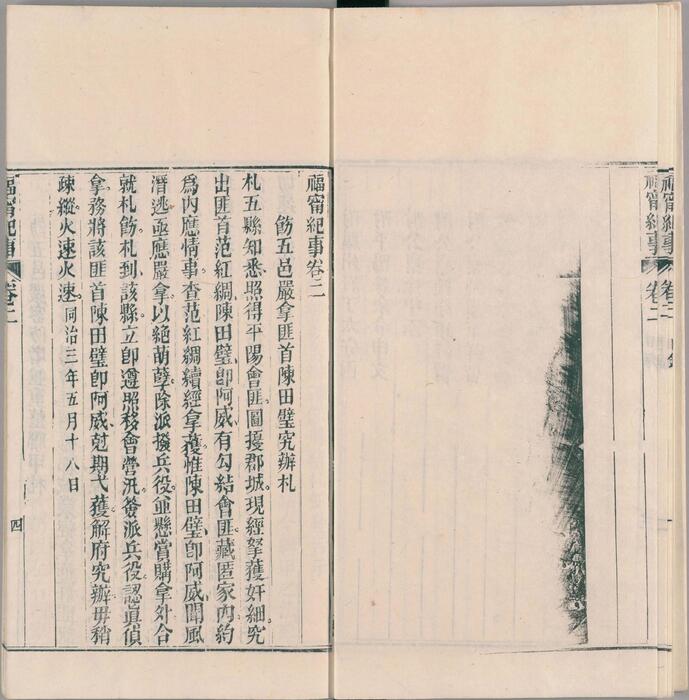 福甯紀事
卷二
福甯紀事卷二
飭五邑嚴拿匪首陳田璧究辦札
札五縣知悉照得平陽會匪圖擾郡城現經拏獲奸細究
出匪首范紅綢陳田璧卽阿威有勾結會匪藏匿家內約
爲內應情事查范紅綢續經拿獲惟陳田璧卽阿威聞風
潛逃亟應嚴拿以絕萌孽除派撥兵役並懸賞購拿外合
就札飭札到該縣立卽遵照移會營汛簽派兵役認眞偵
拿務將該匪首陳田璧卽阿威尅期弋獲解府究辦毋稍
疎縱火速火速同治三年五月十八日
福甯紀事
卷二
四